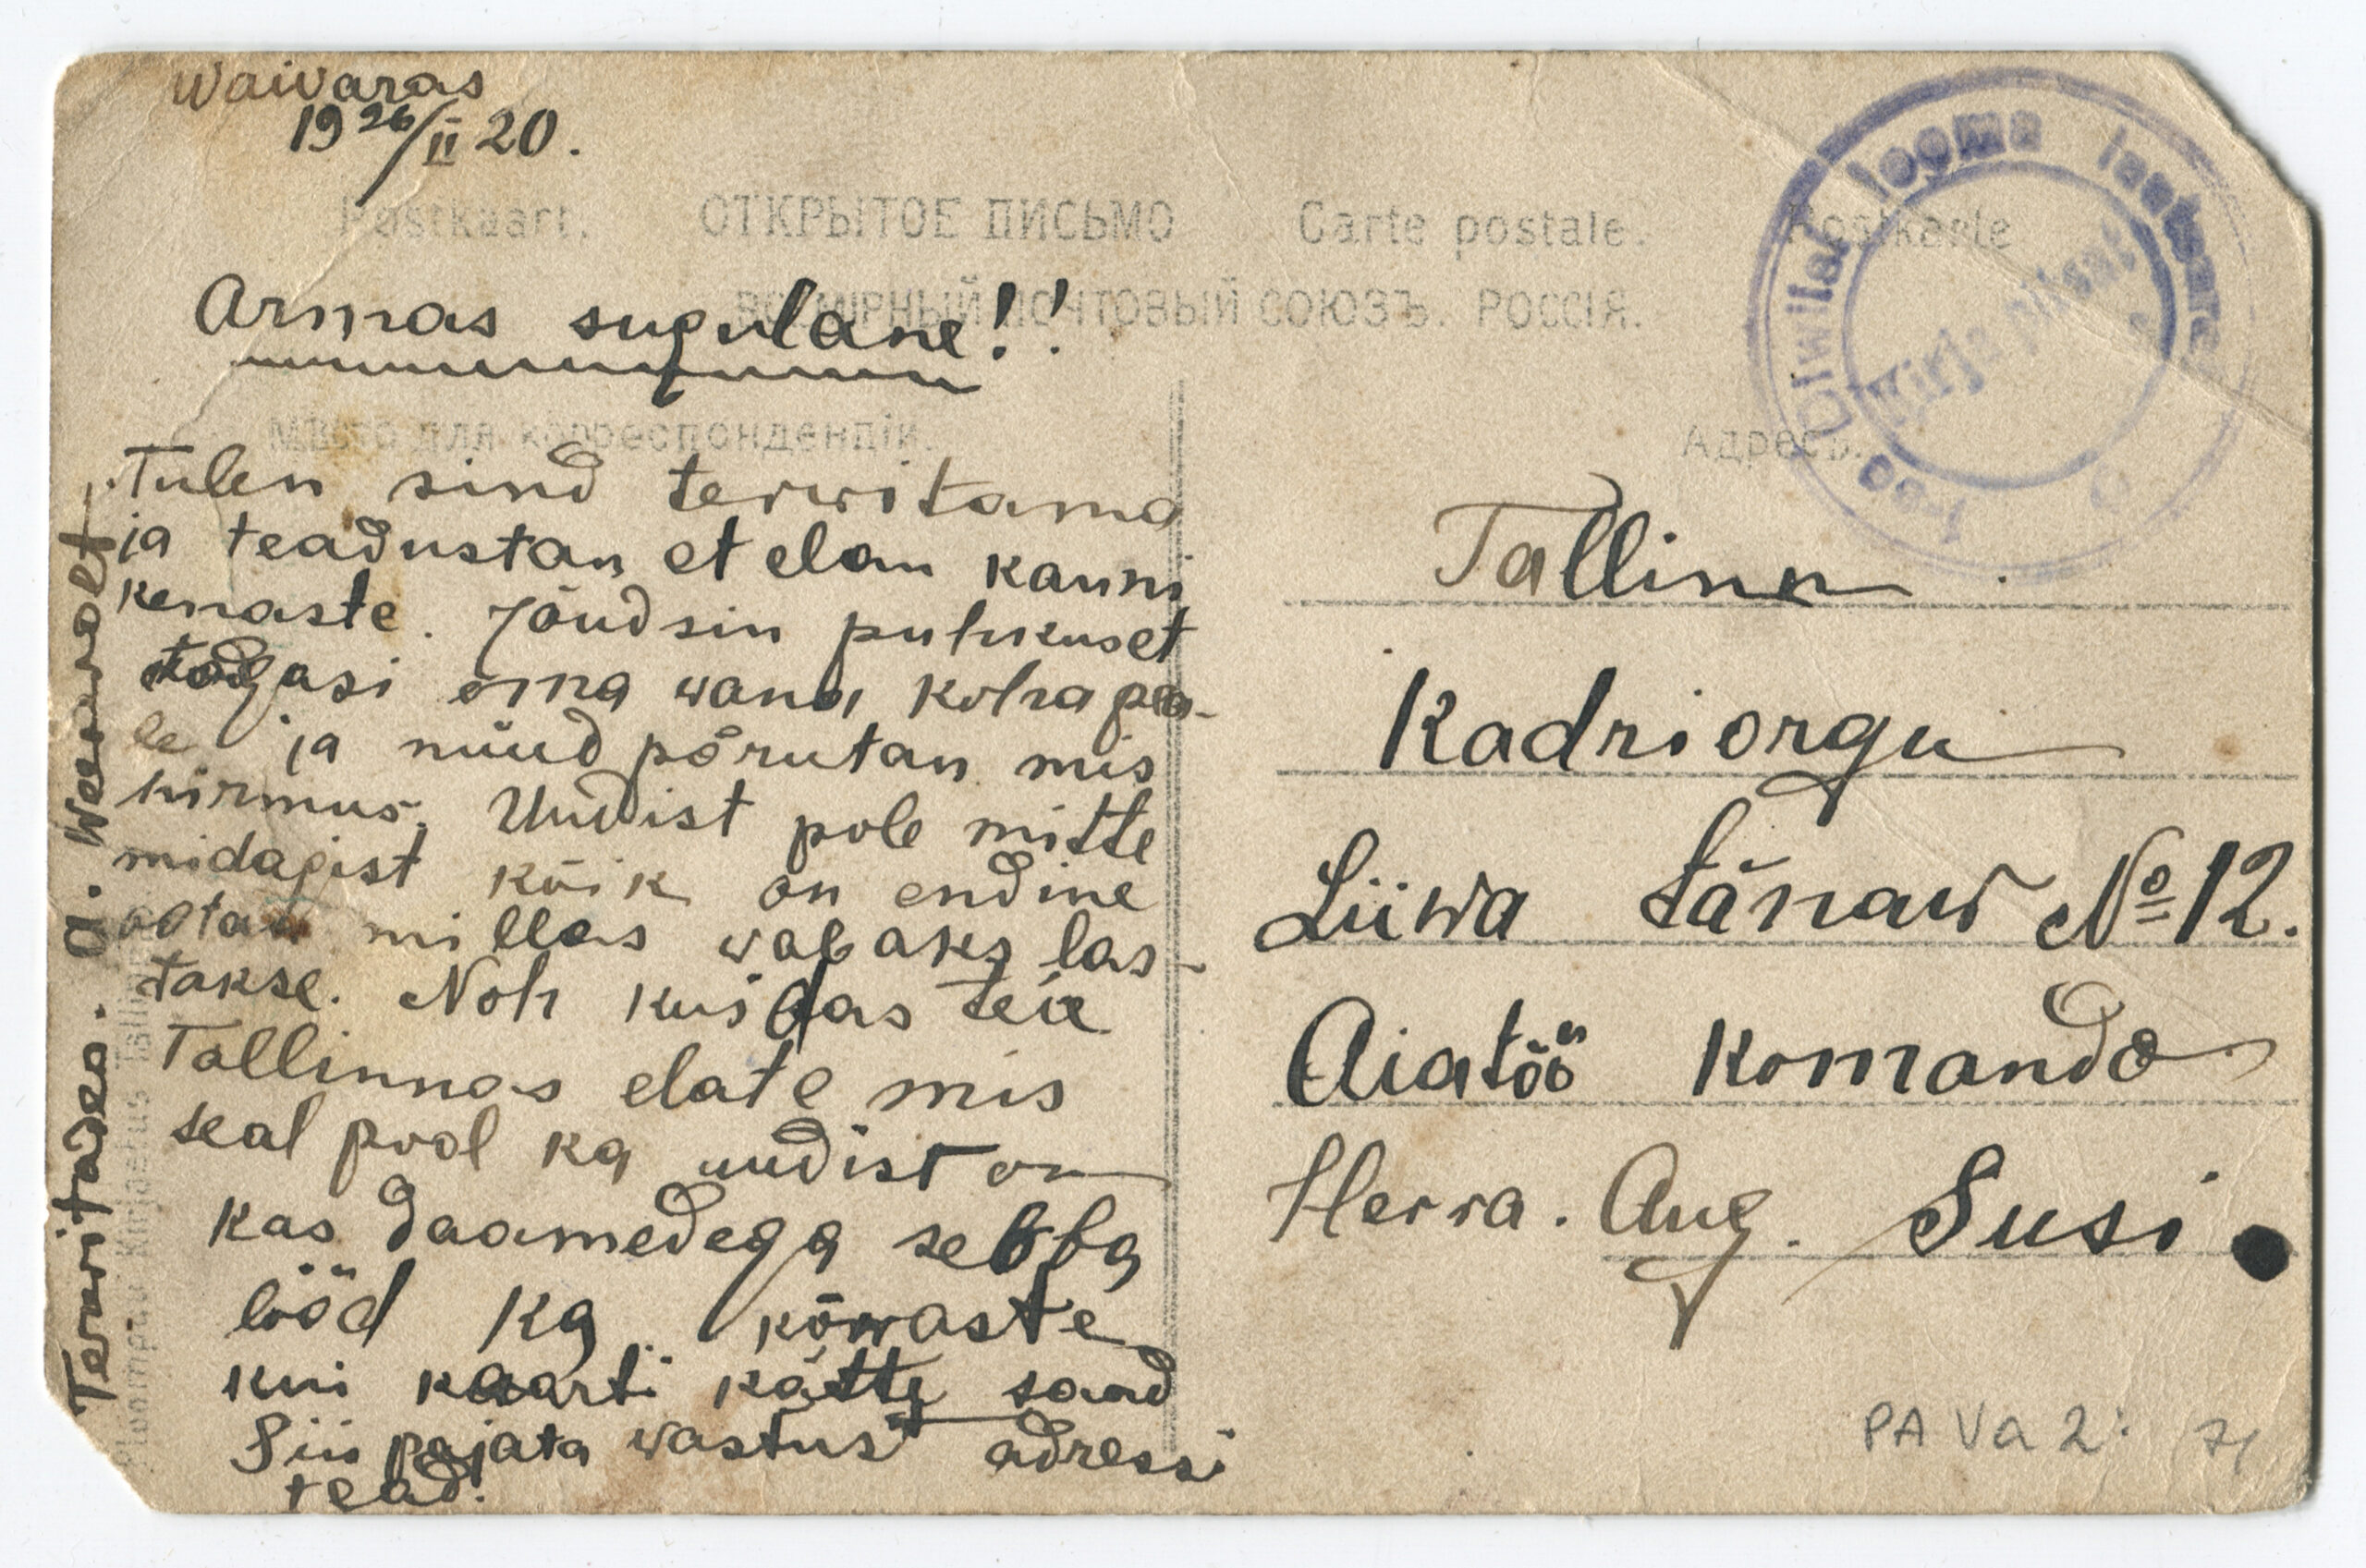 Waivaras
19 26/II 20.
Postkaart. ОТКРЫТОЕ ПИСЬМО Carte postale. Postkarte
ВСЕМІРНЫЙ ПОЧТОВЫЙ СОЮЗЪ. РОССІЯ.
Armas sugulane!!
Мѣсто для корреспонденціи.
Tulen sind terwitama
ja teadustan et elan kauni
kenaste. Jõudsin puhkuset
tagasi oma wana koha pea-
le ja nüüd põrutan mis
hirmus. Uudist pole mitte
midagist kõik on endine
ootan millas wabaks las-
takse. Noh kuidas teie
Tallinnas elate mis
seal pool ka uudist on
kas daamedega sebba
lööd ka kõwaste
kui kaarti kätte saad
Siis pajata wastust adressi
tead.
Terwitades. A.
looma
Kirja
Адресъ.
Tallinn
Kadriorgu
Liiwa tänaw No 12.
Aiatöö komando
Herra. Aug. Susi.
PA Va 2: